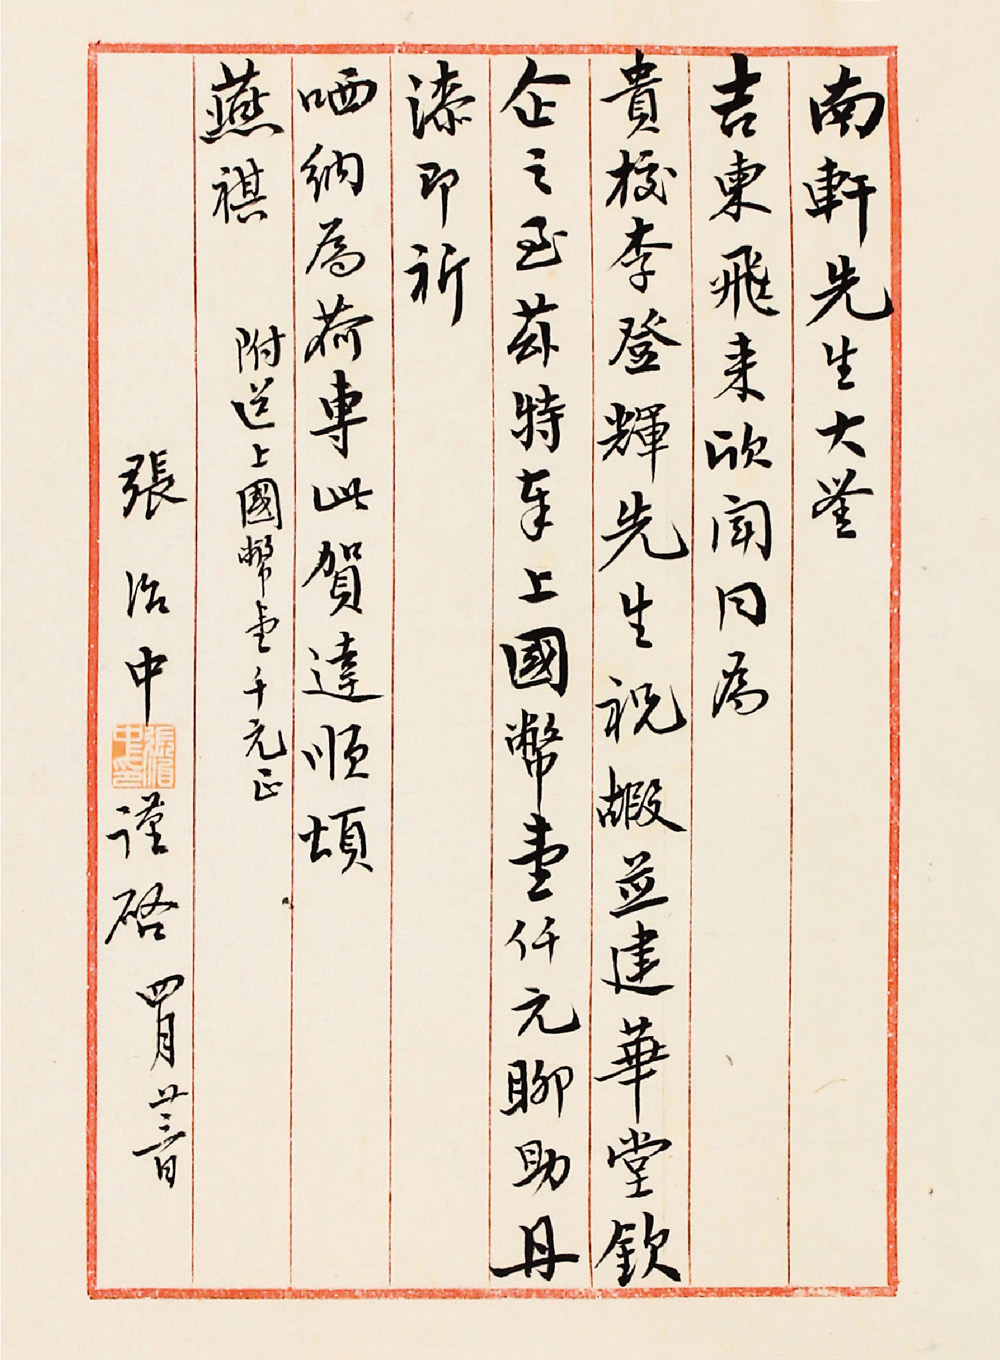 南軒先生大鑒
吉柬飛来欣聞同為
貴校李登輝先生祝嘏並建華堂欽
企之至茲特奉上國幣壹仟元聊助丹
漆即祈
哂納為荷專此賀達順頌
燕祺
附送上國幣壹千元正
張治中謹啓 四月廿三日
張治中印